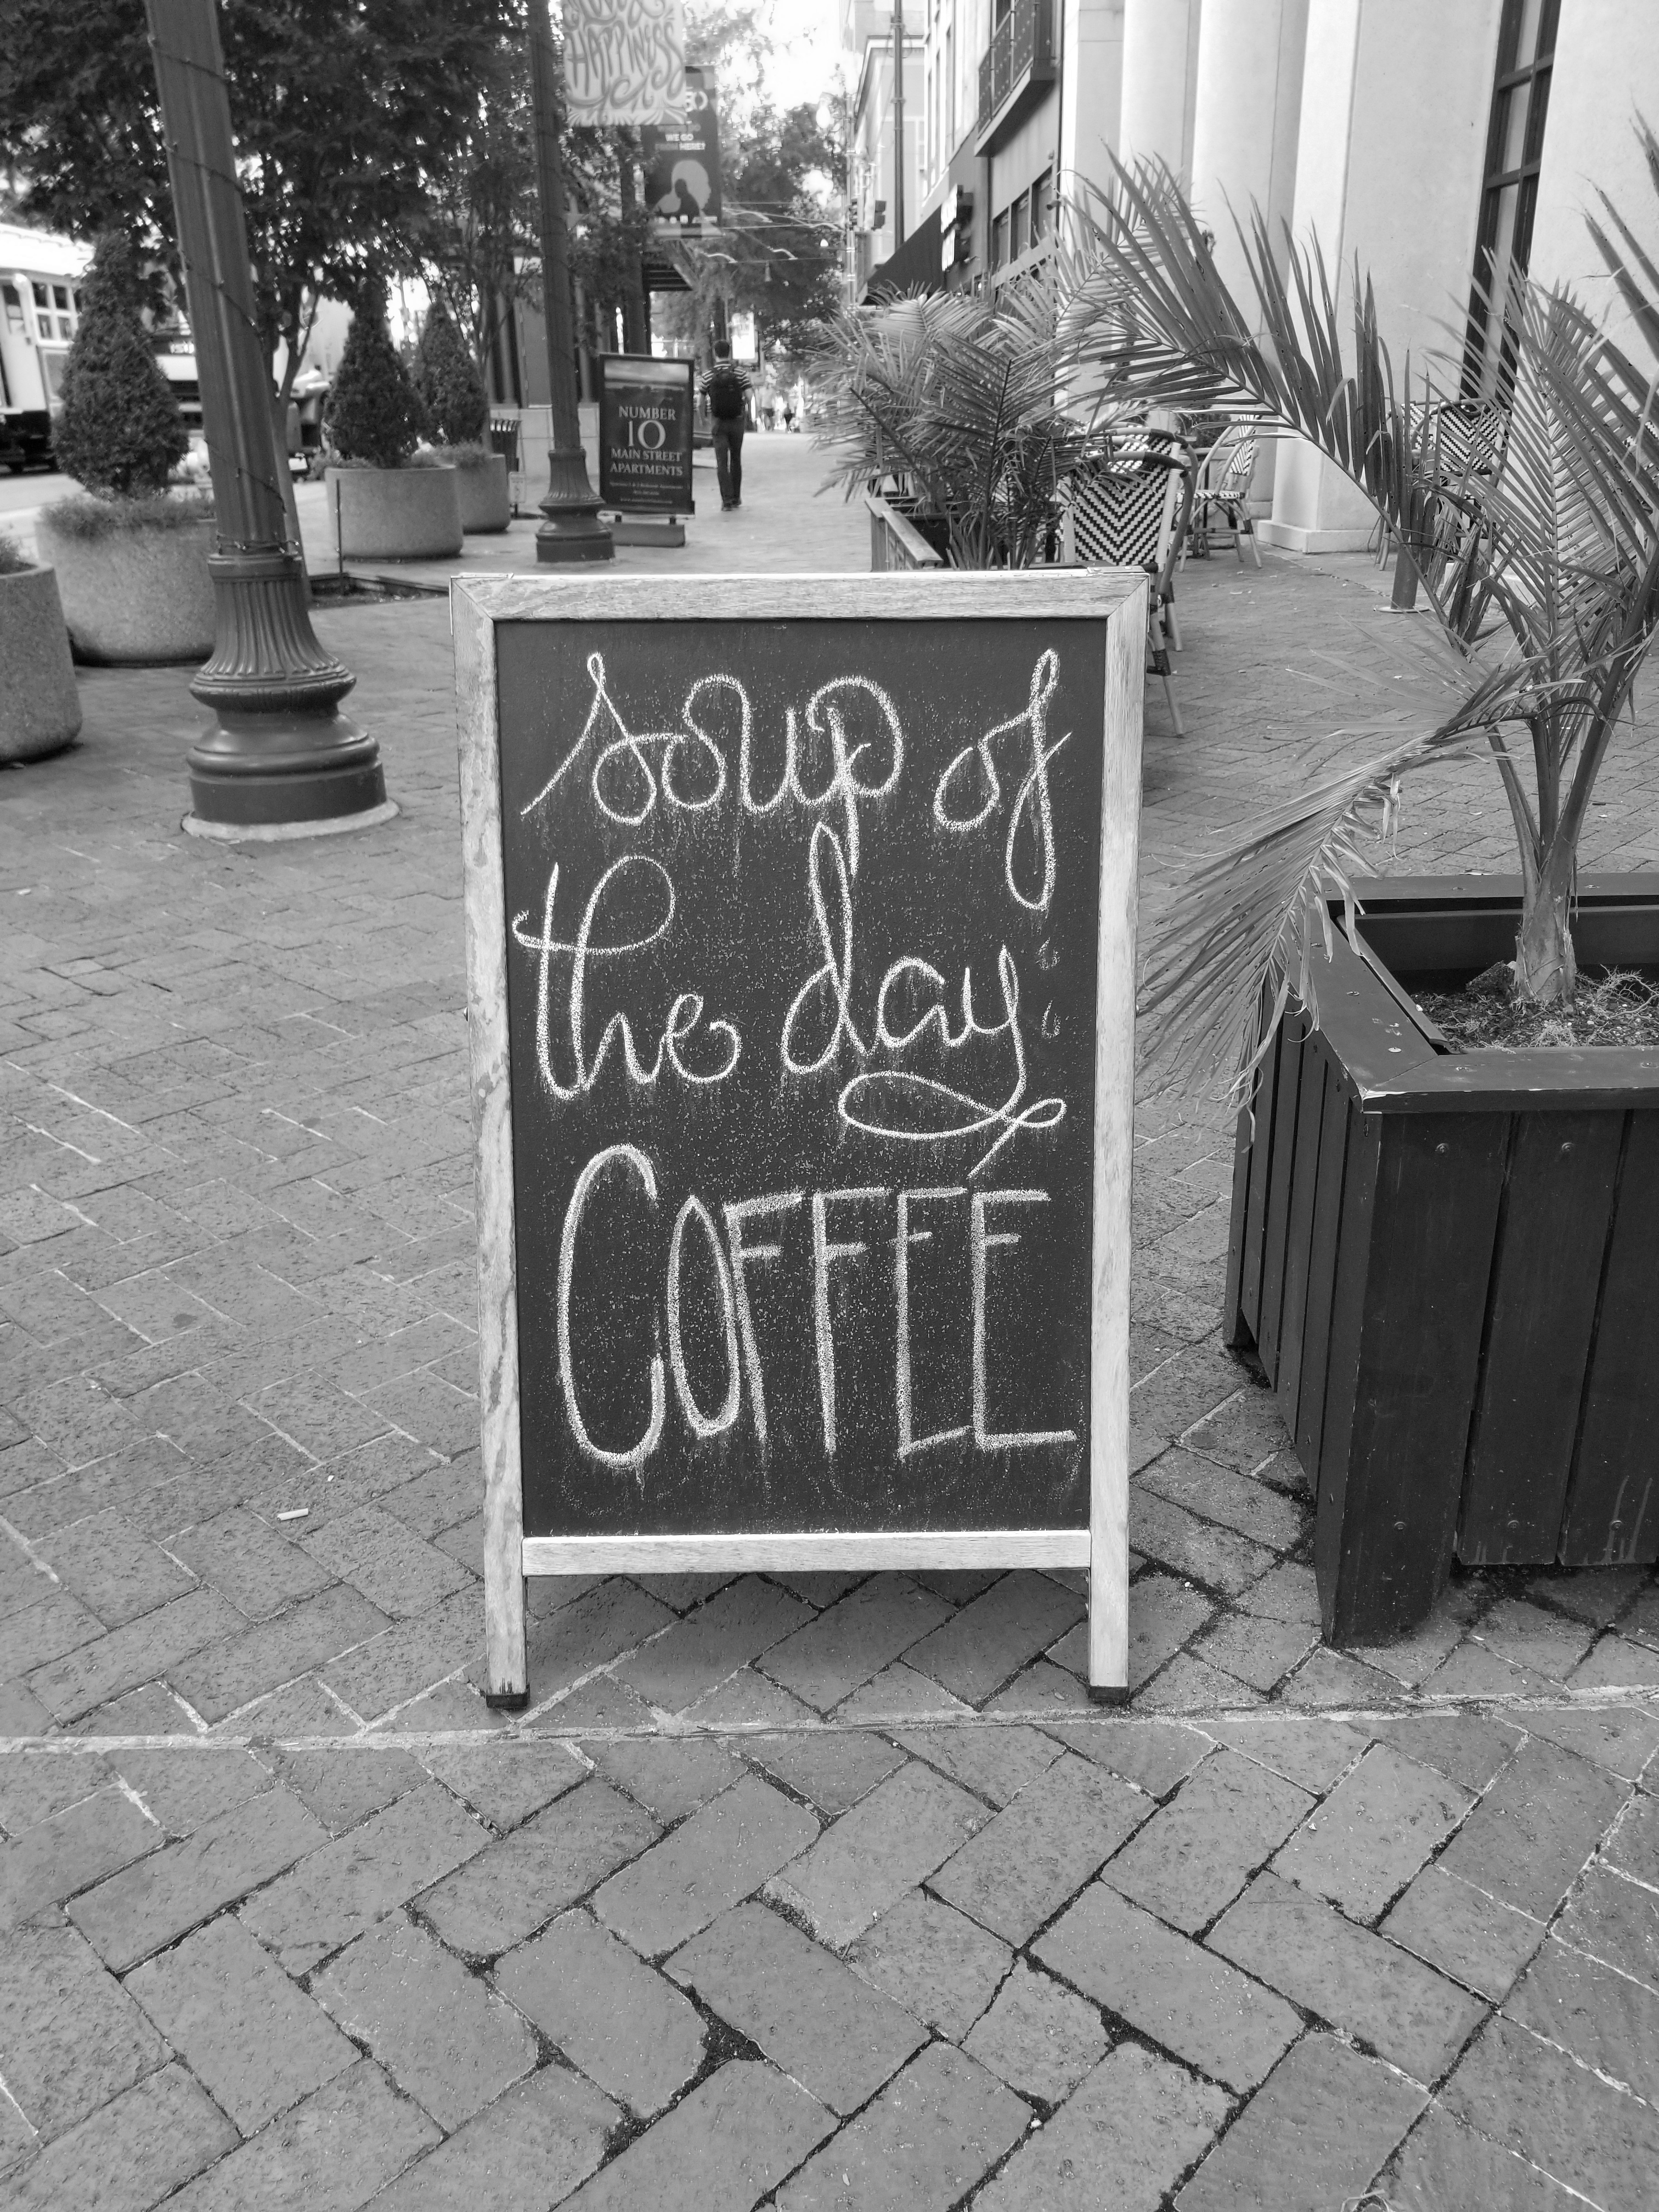 HAPPINESS
WE GO
FROM HERE?
NUMBER
10
MAIN STREET
APARTMENTS
soup of
the day
COFFEE